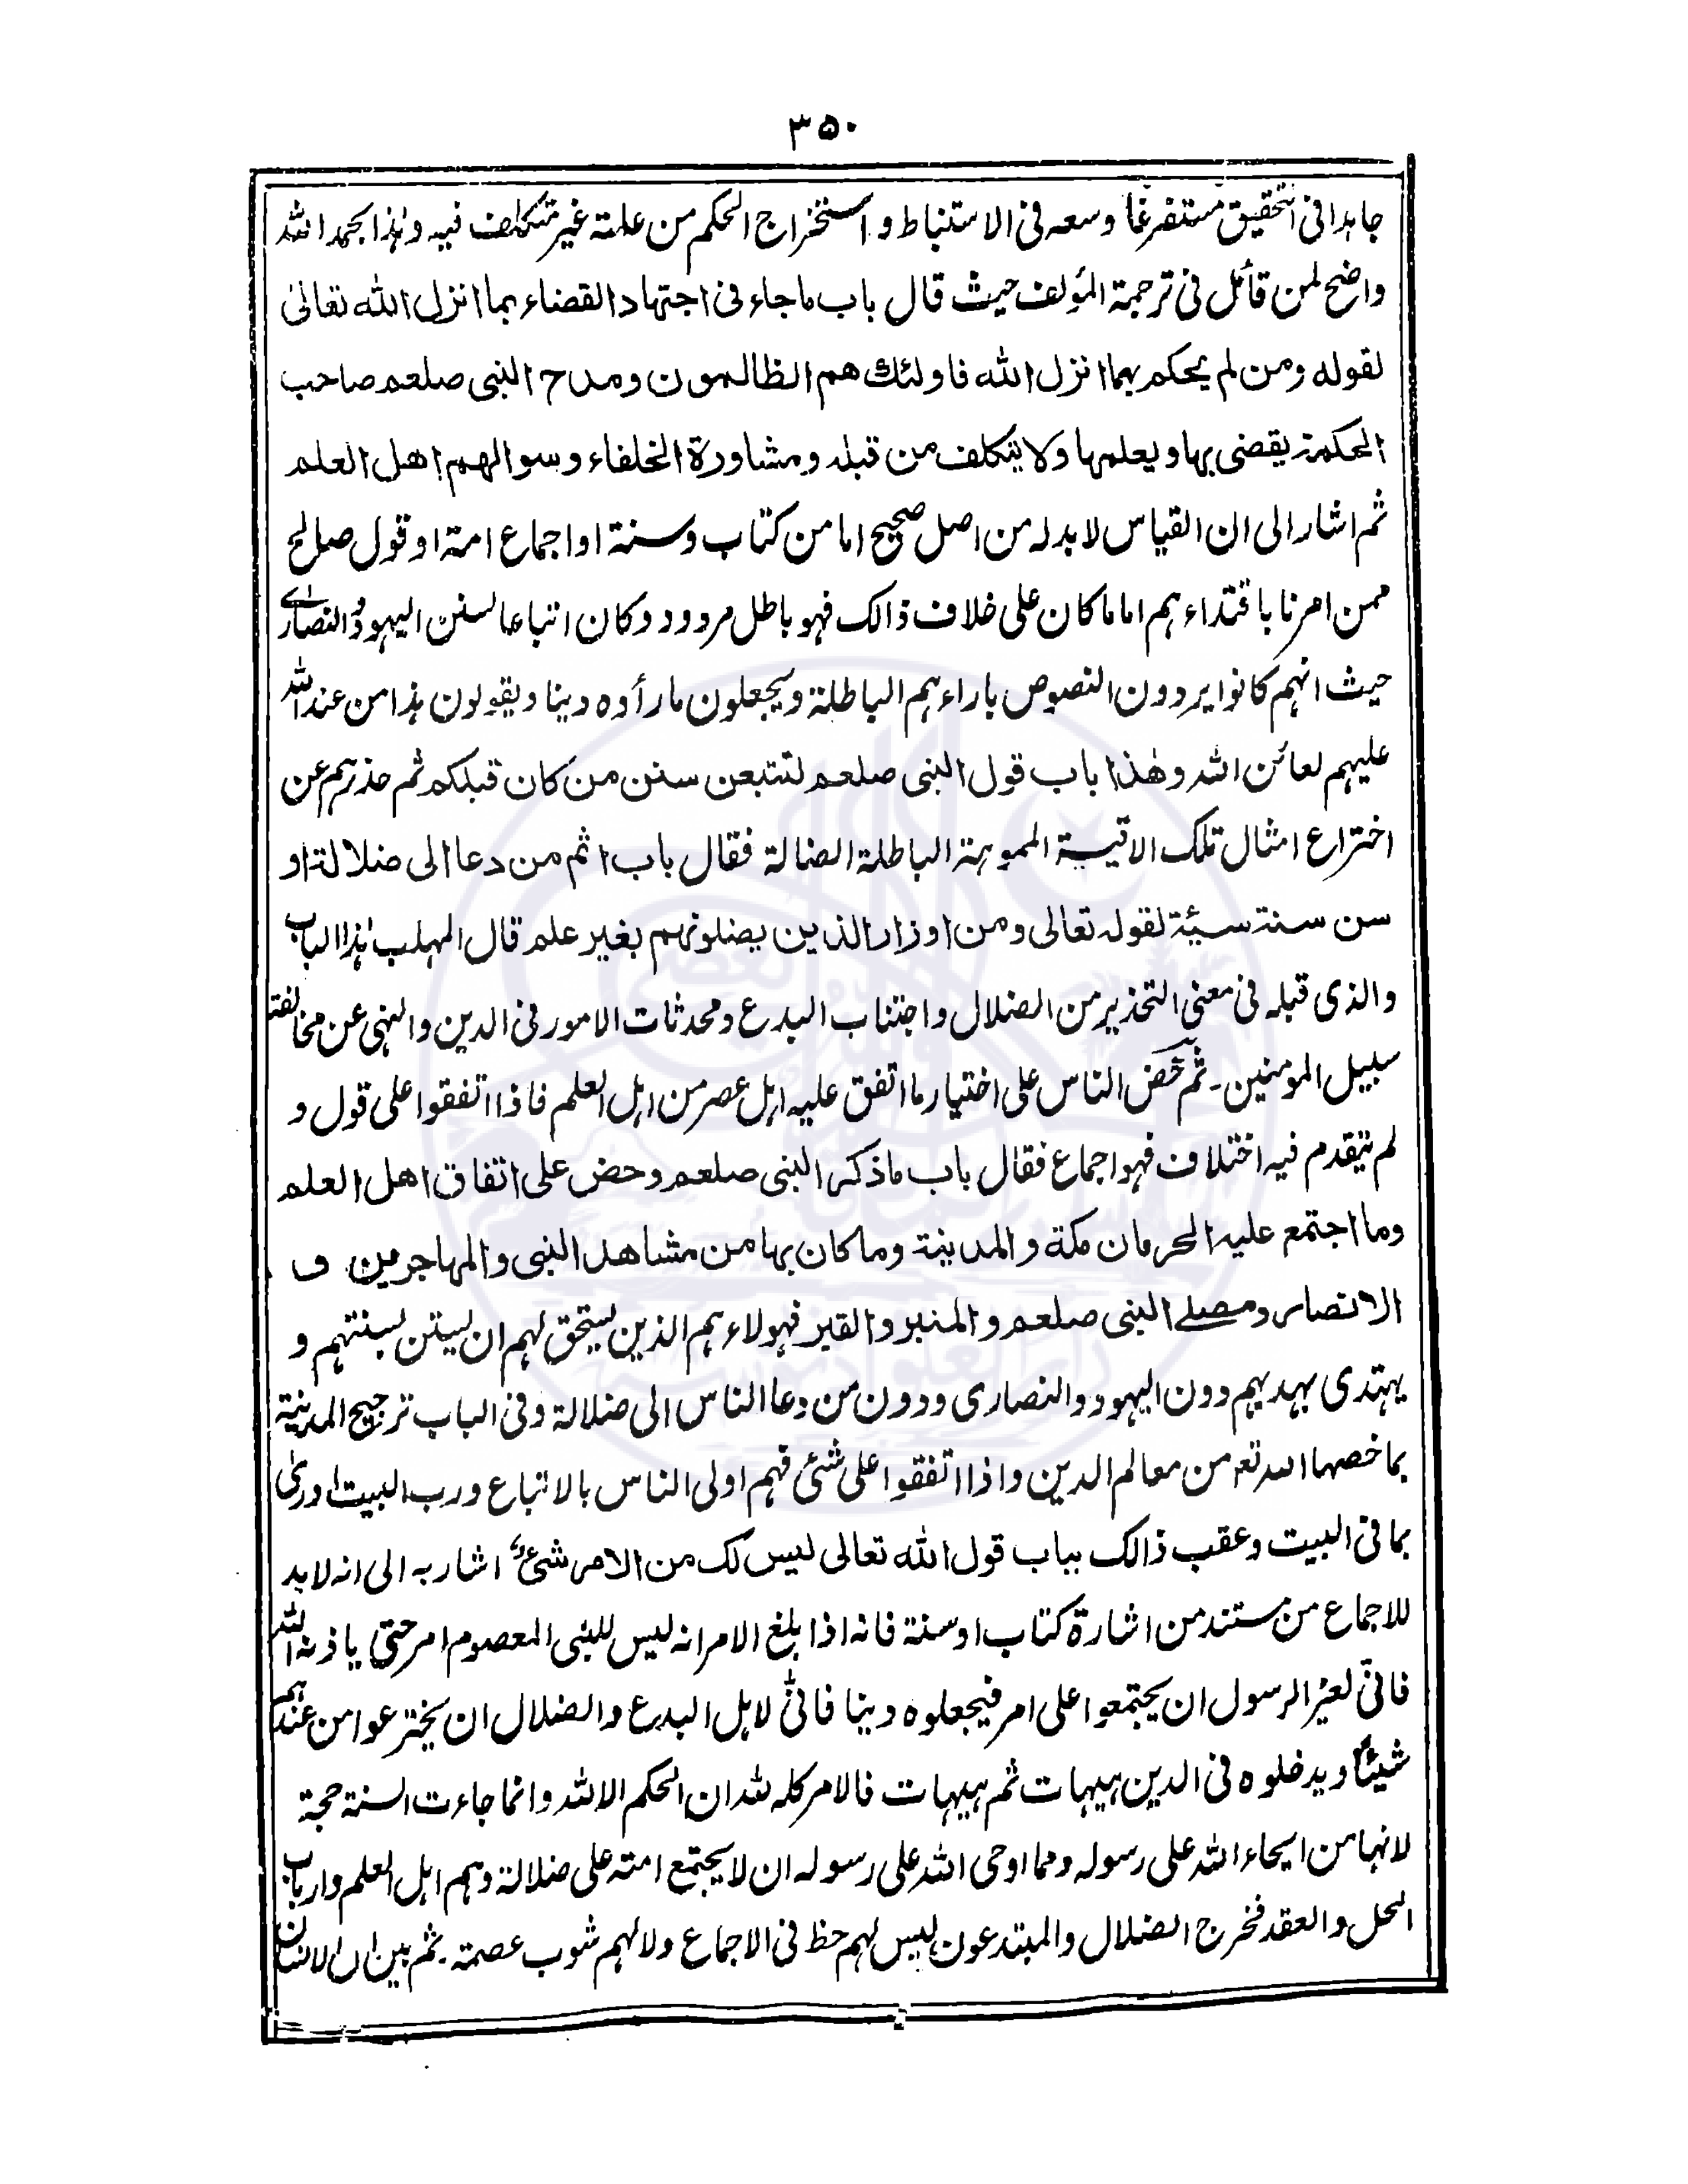 ٣٥٠
جاہدا فی التحقیق مستفرغا وسعہ فی الاستنباط و استخراج الحکم من علتہ غیر متکلف فیہ وہٰذا بحمد اللہ
واضح لمن تأمل فی ترجمۃ المؤلف حیث قال باب ماجاء فی اجتہاد القضاء بما انزل اللہ تعالیٰ
لقولہ ومن لم یحکم بما انزل اللہ فاولئک ھم الظالمون ومدح النبی صلعم صاحب
الحکمۃ یقضی بہا ویعلمہا ولا یتکلف من قبلہ ومشاورۃ الخلفاء وسوالھم اھل العلم
ثم اشار الی ان القیاس لابدلہ من اصل صحیح اما من کتاب وسنۃ او اجماع امۃ او قول صالح
ممن امرنا باقتداءہم اما ما کان علی خلاف ذالک فہو باطل مردود وکان اتباعا لسنن الیہود والنصاریٰ
حیث انہم کانوا یردون النصوص باراءہم الباطلۃ ویجعلون ما رأوہ دینا ویقولون ہذا من عند اللہ
علیہم لعائن اللہ وھٰذا باب قول النبی صلعم لتتبعن سنن من کان قبلکم ثم حذرہم عن
اختراع امثال تلک الاقیسۃ المموہۃ الباطلۃ الضالۃ فقال باب اثم من دعا الی ضلالۃ او
سن سنۃ سیئۃ لقولہ تعالی ومن اوزار الذین یضلونہم بغیر علم قال المہلب ہٰذا الباب
والذی قبلہ فی معنی التحذیر من الضلال واجتناب البدع ومحدثات الامور فی الدین والنہی عن مخالفۃ
سبیل المومنین۔ ثم حض الناس علی اختیار ما اتفق علیہ اہل عصر من اہل العلم فاذا اتفقوا علی قول و
لم یتقدم فیہ اختلاف فہو اجماع فقال باب ماذکر النبی صلعم وحض علی اتفاق اھل العلم
وما اجتمع علیہ الحرمان مکۃ والمدینۃ وما کان بہا من مشاھد النبی والمہاجرین و
الانصار ومصلے النبی صلعم والمنبر والقبر فہولاء ہم الذین یستحق لہم ان یستن بسنتہم و
یہتدی بہدیہم دون الیہود والنصاری ودون من دعا الناس الی ضلالۃ وفی الباب ترجیح المدینۃ
بما خصہا اللہ تعہ من معالم الدین واذا اتفقوا علی شئ فہم اولی الناس بالاتباع ورب البیت ادریٰ
بما فی البیت وعقب ذالک بباب قول اللہ تعالی لیس لک من الامر شئ اشار بہ الی انہ لابد
للاجماع من مستند من اشارۃ کتاب او سنۃ فانہ اذا بلغ الامر انہ لیس للنبی المعصوم امر حتی یاذنہ اللہ
فانیٰ لغیر الرسول ان یجتمعوا علی امر فیجعلوہ دینا فانیٰ لاہل البدع والضلال ان یخترعوا من عندہم
شیئا ویدخلوہ فی الدین ہیہات ثم ہیہات فالامر کلہ للہ ان الحکم الا للہ وانما جاءت السنۃ حجۃ
لانہا من ایحاء اللہ علی رسولہ ومما اوحی اللہ علی رسولہ ان لا یجتمع امتہ علی ضلالۃ وہم اہل العلم وارباب
الحل والعقد فخرج الضلال والمبتدعون لیس لہم حظ فی الاجماع ولا لہم شوب عصمتہ۔ ثم بین ان الانسان